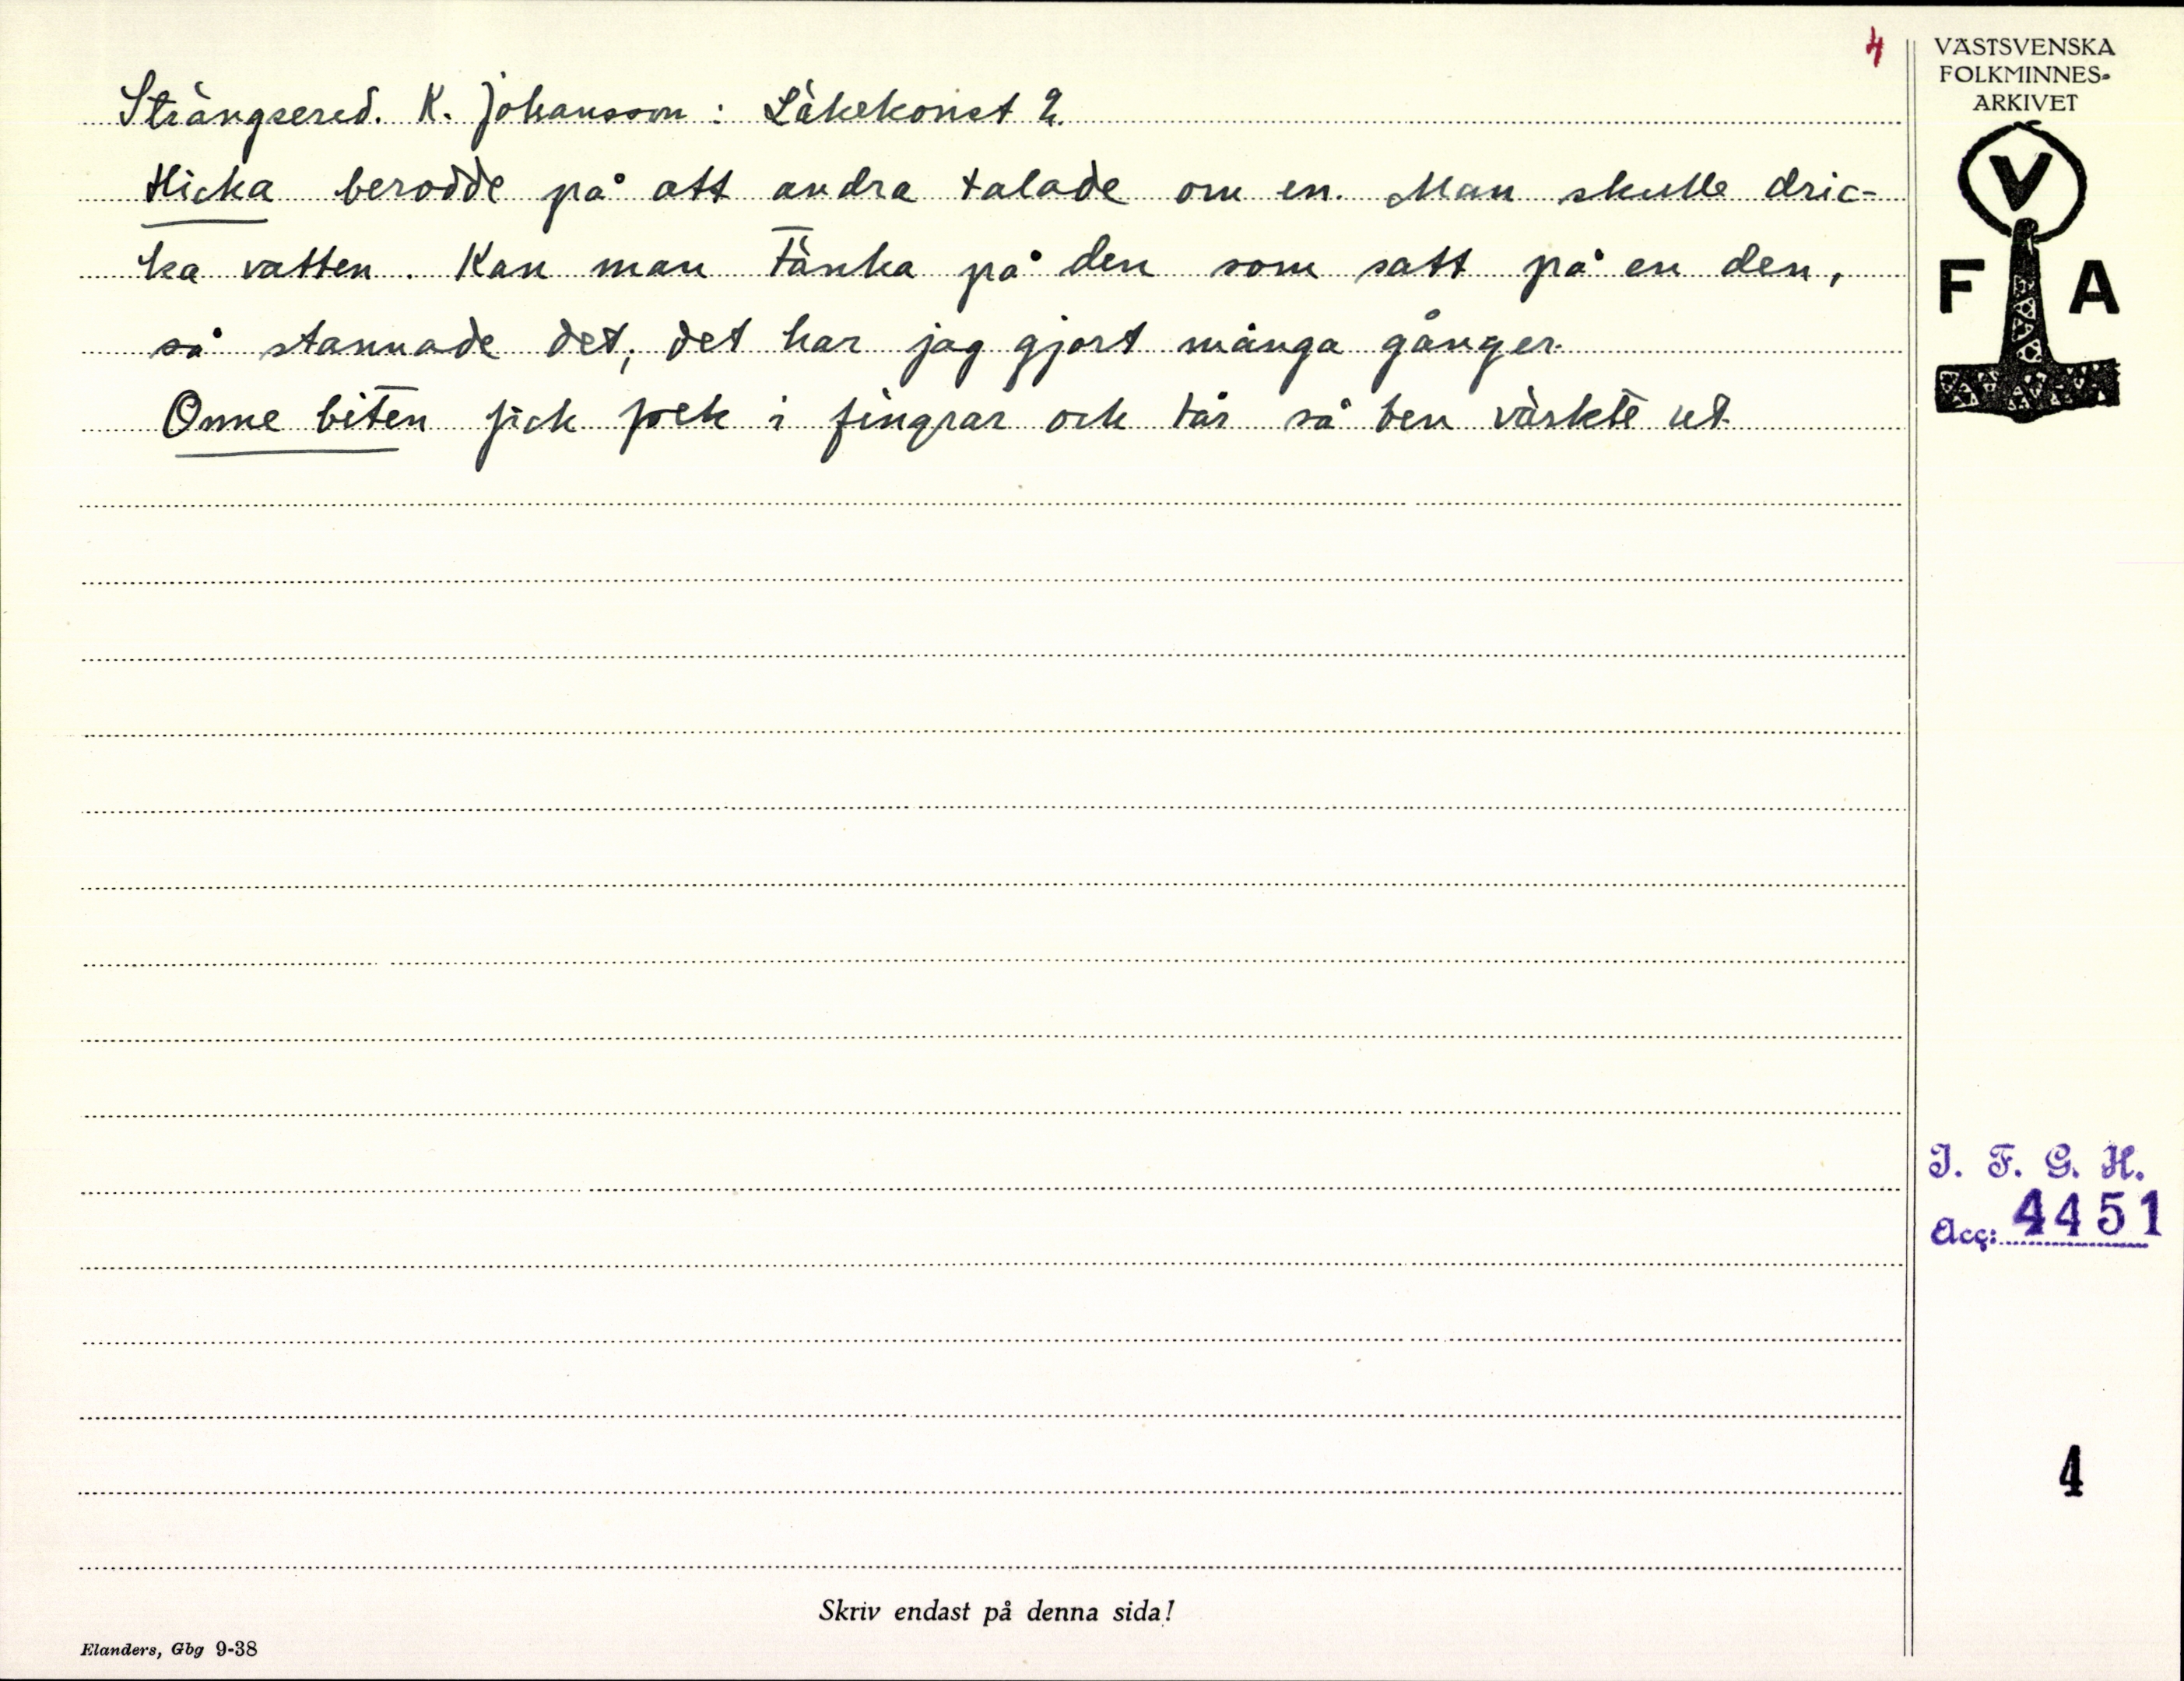 4
VÄSTSVENSKA
FOLKMINNES-
ARKIVET
V
F A
Strängsered. K. Johansson: Läkekonst 2.
Hicka berodde på att andra talade om en. Man skulle dric-
ka vatten. Kan man tänka på den som satt på en den,
så stannade det; det har jag gjort många gånger.
Onne biten fick folk i fingrar och tår så ben värkte ut
I. F. G. H.
Acc: 4451
4
Skriv endast på denna sida!
Elanders, Gbg 9-38